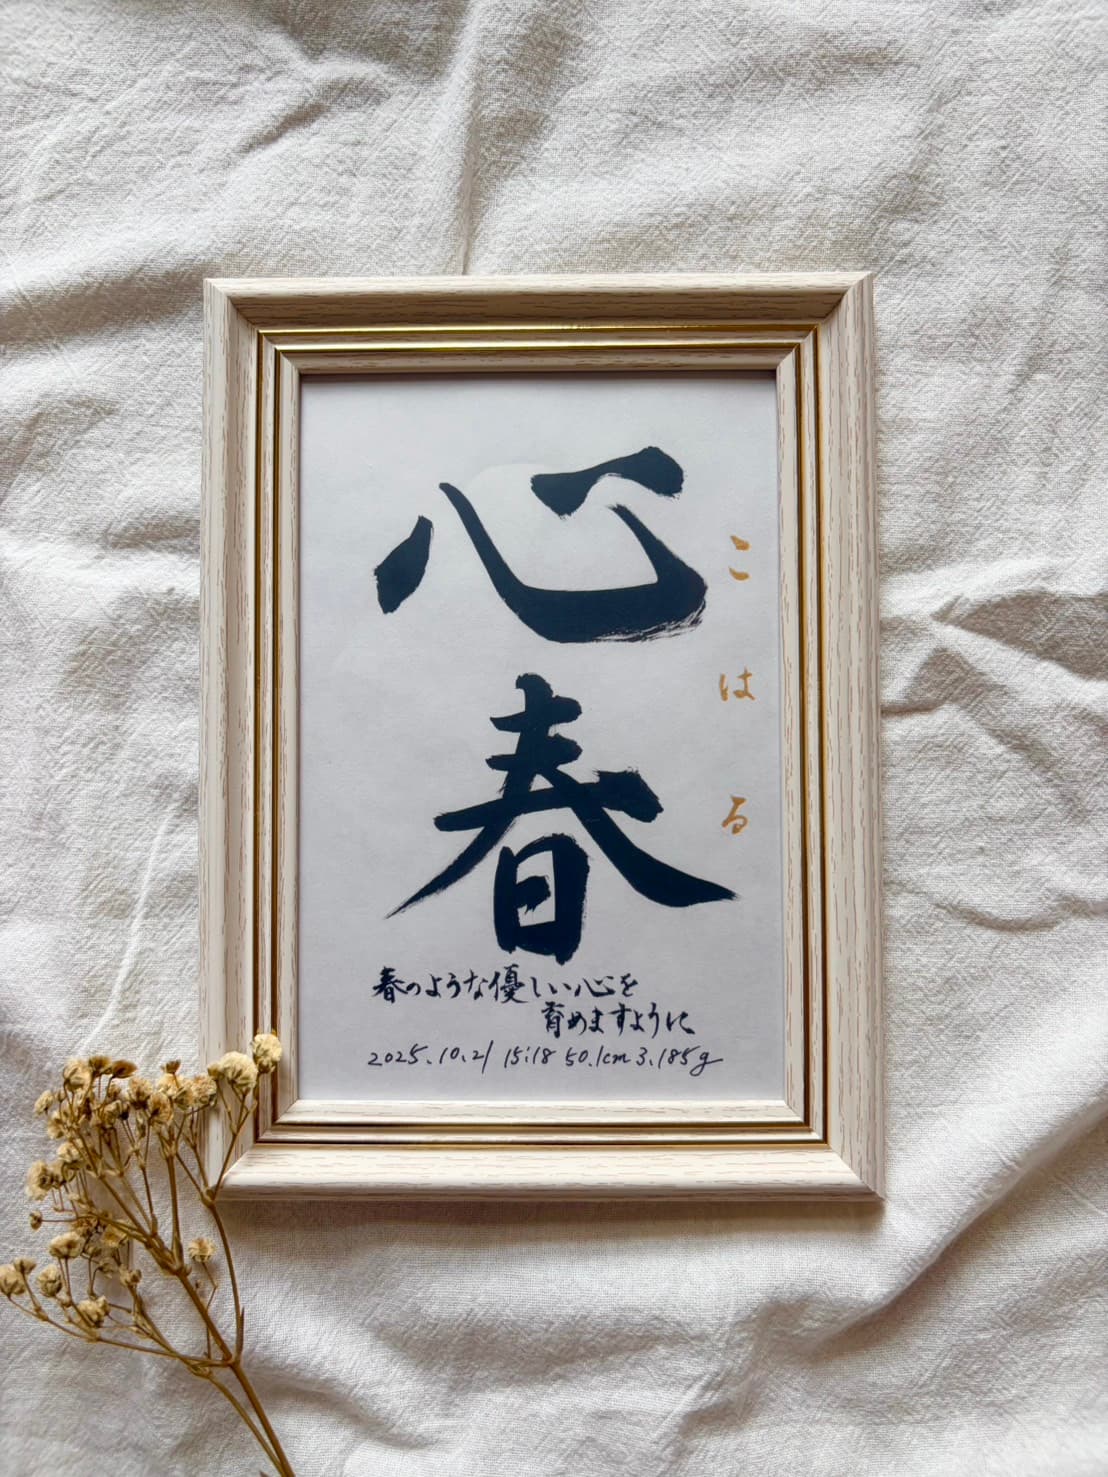 心春
こはる
春のような優しい心を
育めますように
2025.10.21 15:18 50.1cm 3.185g